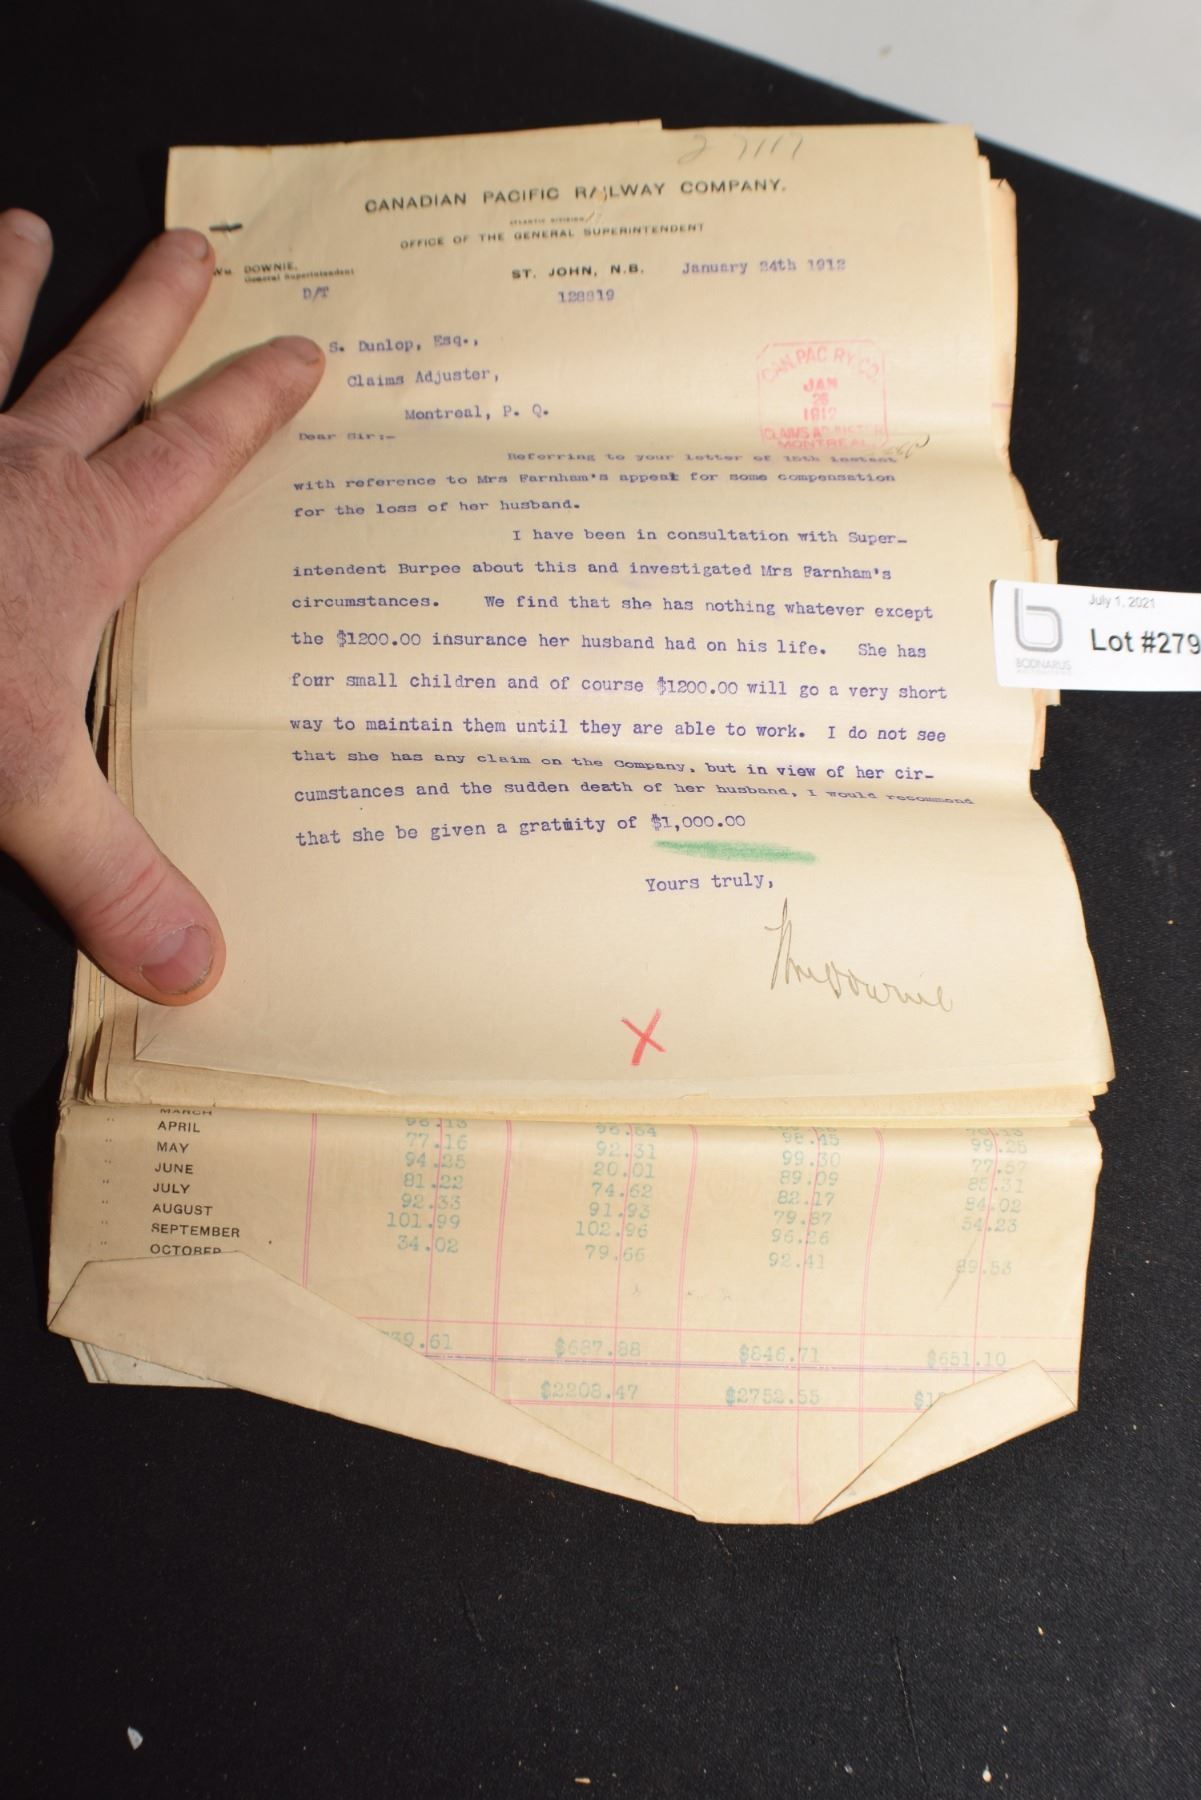 27117
CANADIAN PACIFIC RAILWAY COMPANY.
ATLANTIC DIVISION
OFFICE OF THE GENERAL SUPERINTENDENT
WM. DOWNIE,
General Superintendent
ST. JOHN, N.B. January 24th 1912
D/T
128819
S. Dunlop, Esq.,
Claims Adjuster,
Montreal, P. Q.
CAN. PAC. RY. CO.
JAN
26
1912
CLAIMS ADJUSTER
MONTREAL
Dear Sir:-
Referring to your letter of 15th instant
with reference to Mrs Farnham's appeal for some compensation
for the loss of her husband.
I have been in consultation with Super-
intendent Burpee about this and investigated Mrs Farnham's
circumstances. We find that she has nothing whatever except
the $1200.00 insurance her husband had on his life. She has
four small children and of course $1200.00 will go a very short
way to maintain them until they are able to work. I do not see
that she has any claim on the Company, but in view of her cir-
cumstances and the sudden death of her husband, I would recommend
that she be given a gratuity of $1,000.00
Yours truly,
Wm Downie
X
July 1, 2021
Lot #279
BODNARUS
MARCH
" APRIL 98.13 96.64
" MAY 77.16 92.31 98.45 99.25
" JUNE 94.25 20.01 99.30 77.57
" JULY 81.22 74.62 89.09 85.31
" AUGUST 92.33 91.93 82.17 84.02
" SEPTEMBER 101.99 102.96 79.87 54.23
" OCTOBER 34.02 79.66 96.26
92.41 89.53
39.61 $687.88 $846.71 $651.10
$2208.47 $2752.55 $1